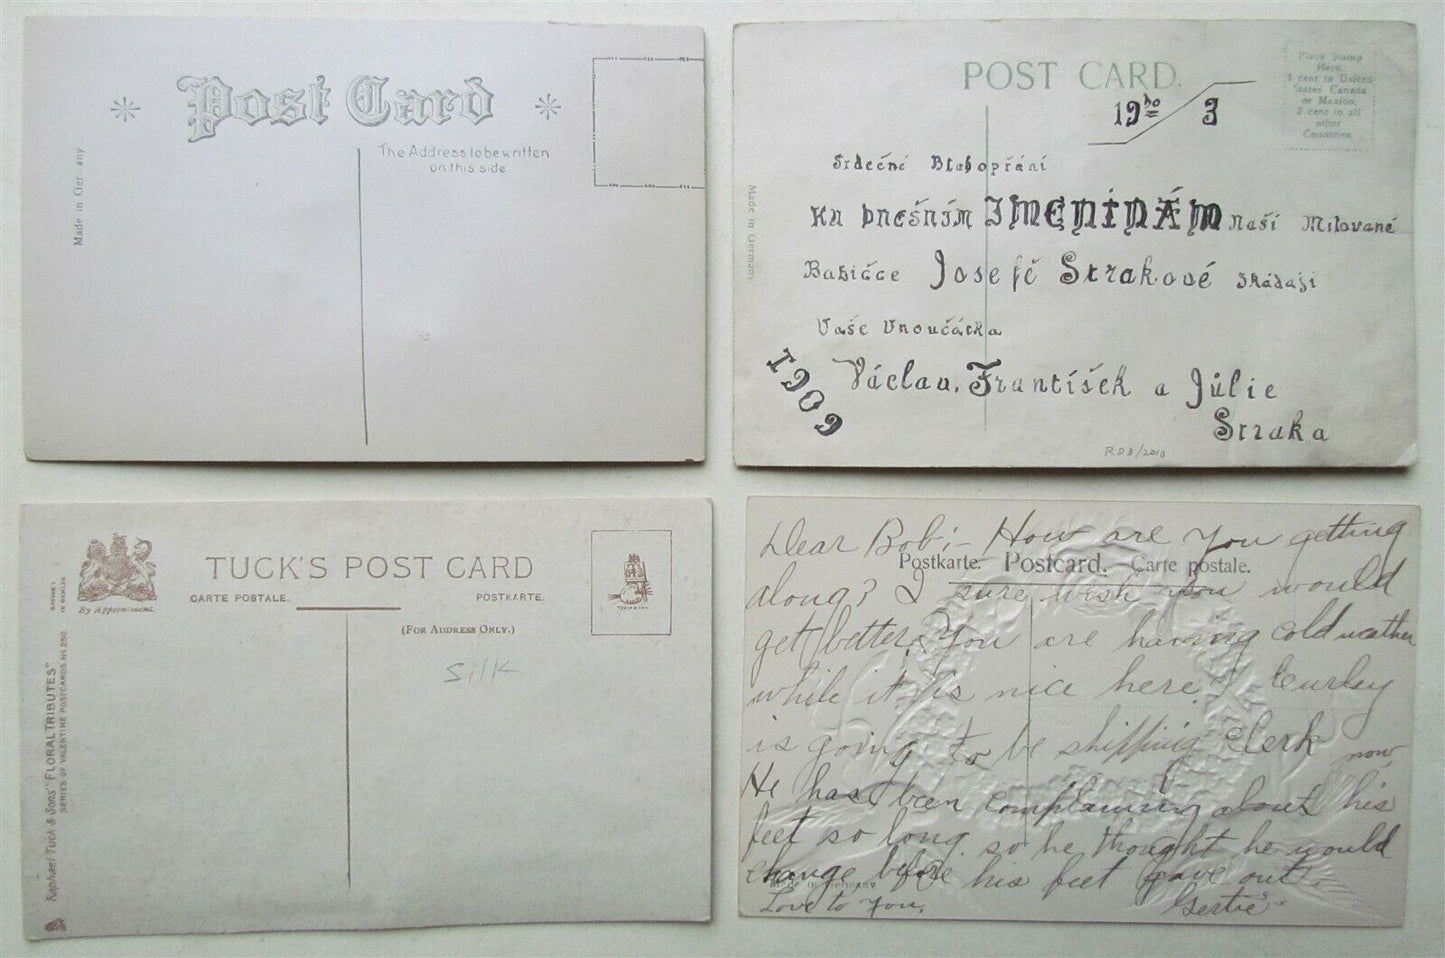 Post Card
The Address to be written
on this side
Made in Germany
POST CARD.
Place Stamp
Here.
1 cent to United
States Canada
or Mexico.
2 cent to all
other
Countries.
19ho 3
Srdečné Blahopřání
Ku Dnešním JMENINÁM Naší Milované
Babičce Josefě Strakové skádají
Vaše Vnoučátka
1909
Václav, František a Júlie
Straka
Made in Germany
R.D.B/2010
TUCK'S POST CARD
CARTE POSTALE.
POSTKARTE.
(FOR ADDRESS ONLY.)
By Appointment.
Silk
Raphael Tuck & Sons' "FLORAL TRIBUTES"
SERIES OF VALENTINE POSTCARDS No 250.
Postkarte. Postcard. Carte postale.
Dear Bob;- How are you getting
along? I sure wish you would
get better. You are having cold weather
while it is nice here. Curley
is going to be shipping clerk now
He has been complaining about his
feet so long so he thought he would
change before his feet gave out.
Love to You,
Gertie
Made in Germany